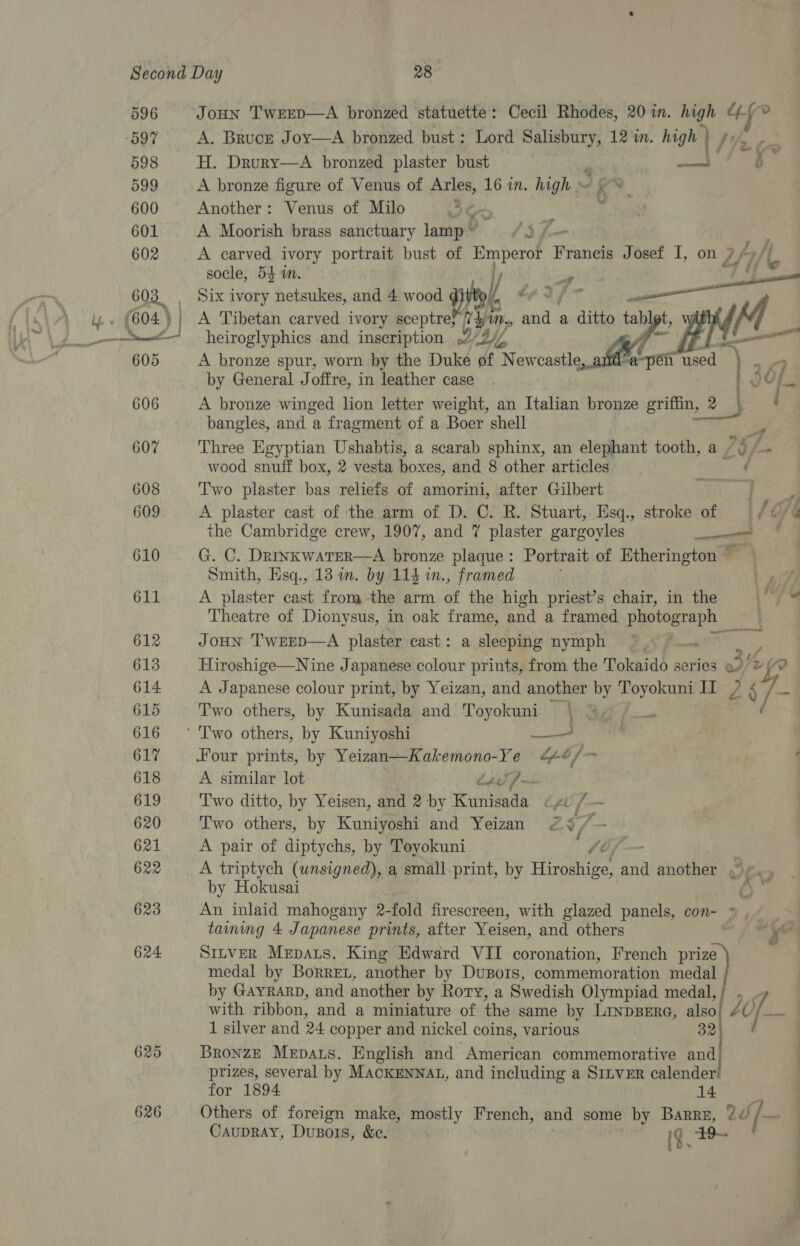 Second Day 28
596 JOHN TWEED—A bronzed statuette: Cecil Rhodes, 20 in. high
597 A. BRUCE JOY—A bronzed bust: Lord Salisbury, 12 in. high
598 H. DRURY—A bronzed plaster bust
599 A bronze figure of Venus of Arles, 16 in. high
600 Another: Venus of Milo
601 A Moorish brass sanctuary lamp
602 A carved ivory portrait bust of Emperor Francis Josef I, on
socle, 5½ in.
603 Six ivory netsukes, and 4 wood ditto
604 A Tibetan carved ivory sceptre, 7½ in., and a ditto tablet, with
heiroglyphics and inscription
605 A bronze spur, worn by the Duke of Newcastle, and a pen used
by General Joffre, in leather case
606 A bronze winged lion letter weight, an Italian bronze griffin, 2
bangles, and a fragment of a Boer shell
607 Three Egyptian Ushabtis, a scarab sphinx, an elephant tooth, a
wood snuff box, 2 vesta boxes, and 8 other articles
608 Two plaster bas reliefs of amorini, after Gilbert
609 A plaster cast of the arm of D. C. R. Stuart, Esq., stroke of
the Cambridge crew, 1907, and 7 plaster gargoyles
610 G. C. DRINKWATER—A bronze plaque: Portrait of Etherington
Smith, Esq., 13 in. by 11½ in., framed
611 A plaster cast from the arm of the high priest's chair, in the
Theatre of Dionysus, in oak frame, and a framed photograph
612 JOHN TWEED—A plaster cast: a sleeping nymph
613 Hiroshige—Nine Japanese colour prints, from the Tokaido series
614 A Japanese colour print, by Yeizan, and another by Toyokuni II
615 Two others, by Kunisada and Toyokuni
616 Two others, by Kuniyoshi
617 Four prints, by Yeizan—Kakemono-Ye
618 A similar lot
619 Two ditto, by Yeisen, and 2 by Kunisada
620 Two others, by Kuniyoshi and Yeizan
621 A pair of diptychs, by Toyokuni
622 A triptych (unsigned), a small print, by Hiroshige, and another
by Hokusai
623 An inlaid mahogany 2-fold firescreen, with glazed panels, con-
taining 4 Japanese prints, after Yeisen, and others
624 SILVER MEDALS. King Edward VII coronation, French prize
medal by BORREL, another by DUBOIS, commemoration medal
by GAYRARD, and another by ROTY, a Swedish Olympiad medal,
with ribbon, and a miniature of the same by LINDBERG, also
1 silver and 24 copper and nickel coins, various 32
625 BRONZE MEDALS. English and American commemorative and
prizes, several by MACKENNAL, and including a SILVER calender
for 1894 14
626 Others of foreign make, mostly French, and some by BARRE,
CAUDRAY, DUBOIS, &c. 19